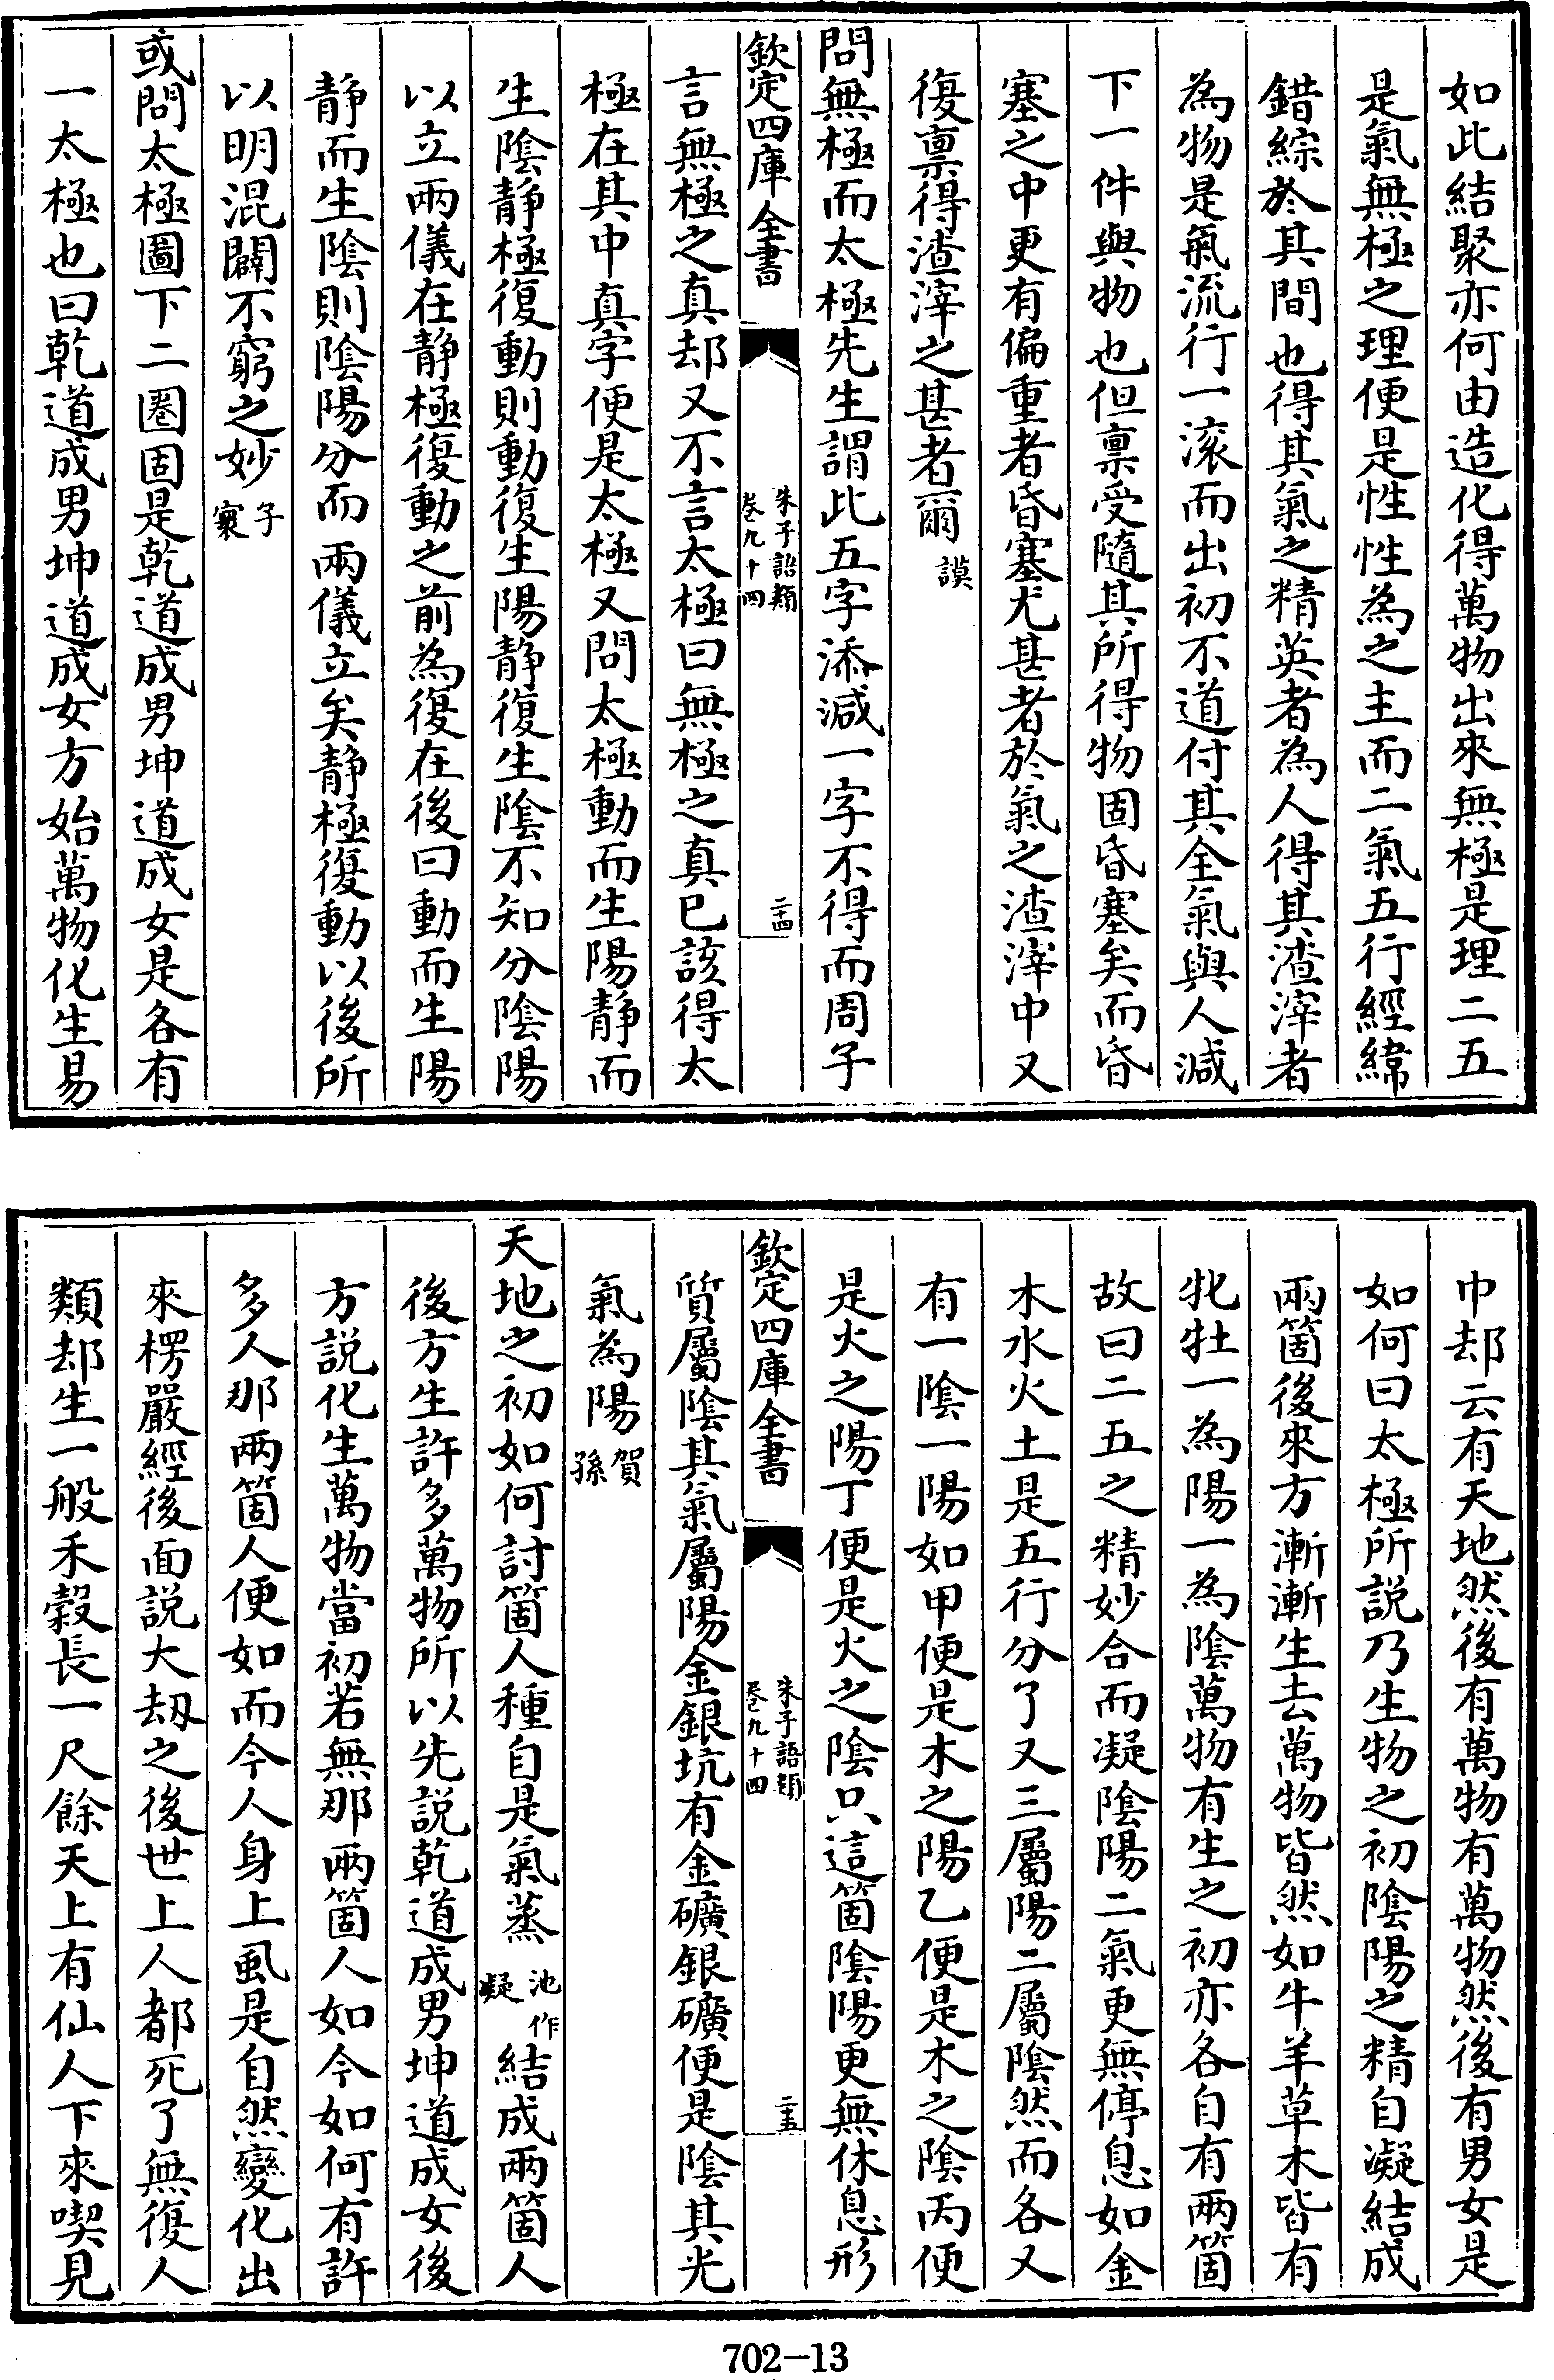 如此結聚亦何由造化得萬物出來無極是理二五
是氣無極之理便是性性為之主而二氣五行經緯
錯綜於其間也得其氣之精英者為人得其渣滓者
為物是氣流行一滚而出初不道付其全氣與人減
下一件與物也但禀受隨其所得物固昏塞矣而昏
塞之中更有偏重者昏塞尤甚者於氣之渣滓中又
復禀得渣滓之甚者爾謨
問無極而太極先生謂此五字添減一字不得而周子
欽定四庫全書
朱子語類
卷九十四
二十四
言無極之真却又不言太極曰無極之真已該得太
極在其中真字便是太極又問太極動而生陽静而
生陰静極復動則動復生陽静復生陰不知分陰陽
以立兩儀在静極復動之前為復在後曰動而生陽
静而生陰則陰陽分而兩儀立矣静極復動以後所
以明混闢不窮之妙子寰
或問太極圖下二圈固是乾道成男坤道成女是各有
一太極也曰乾道成男坤道成女方始萬物化生易
中却云有天地然後有萬物有萬物然後有男女是
如何曰太極所說乃生物之初陰陽之精自凝結成
兩箇後來方漸漸生去萬物皆然如牛羊草木皆有
牝牡一為陽一為陰萬物有生之初亦各自有兩箇
故曰二五之精妙合而凝陰陽二氣更無停息如金
木水火土是五行分了又三屬陽二屬陰然而各又
有一陰一陽如甲便是木之陽乙便是木之陰丙便
是火之陽丁便是火之陰只這箇陰陽更無休息形
欽定四庫全書
朱子語類
卷九十四
二十五
質屬陰其氣屬陽金銀坑有金礦銀礦便是陰其光
氣為陽賀孫
天地之初如何討箇人種自是氣蒸池作凝結成兩箇人
後方生許多萬物所以先說乾道成男坤道成女後
方說化生萬物當初若無那兩箇人如今如何有許
多人那兩箇人便如而今人身上虱是自然變化出
來楞嚴經後面說大劫之後世上人都死了無復人
類却生一般禾穀長一尺餘天上有仙人下來喫見
702-13